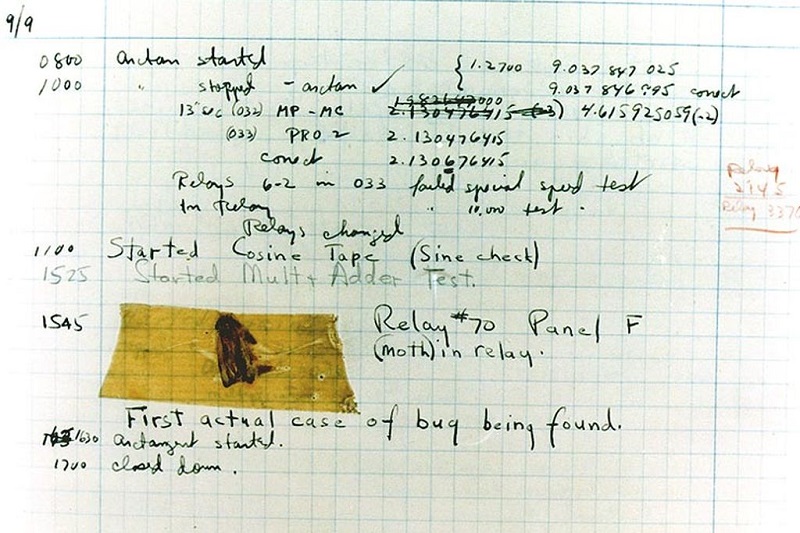 9/9
0800 arctan started { 1.2700 9.037 847 025
1000 " stopped - arctan ✓ 9.037 846 995 conect
13"uc (032) MP - MC 2.130476415 (-3) 4.615925059(-2)
(033) PRO 2 2.130476415
conect 2.130676415
Relays 6-2 in 033 failed special speed test
In Relay " 10.000 test .
Relays changed
1100 Started Cosine Tape (Sine check)
1525 Started Mult+ Adder Test.
1545 Relay #70 Panel F
(moth) in relay.
First actual case of bug being found.
1630 arctangent started.
1700 closed down.
Relay
Relay 3370